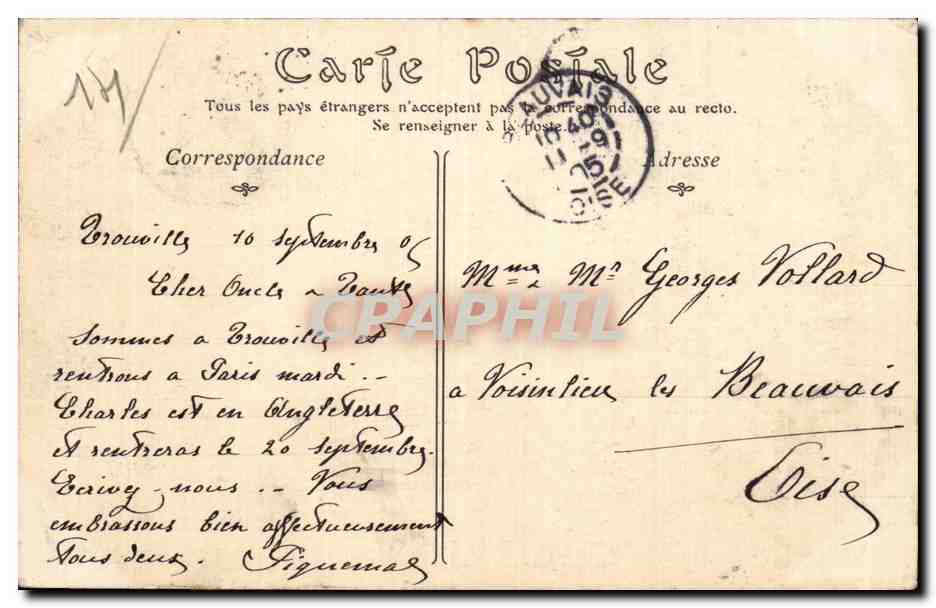 Carte Postale
Tous les pays étrangers n'acceptent pas la correspondance au recto.
Se renseigner à la poste.
Correspondance
Adresse
BEAUVAIS
OISE
Trouville 10 septembre 05
Cher Oncle & Tante
Sommes a Trouville et
rentrons a Paris mardi . -
Charles est en Angleterre
et rentreras le 20 septembre.
Ecrivez-nous . - Vous
embrassons bien affectueusement
tous deux. Piquemal
Mme & Mr Georges Vollard
a Voisinlieu les Beauvais
Oise
CPAPHIL